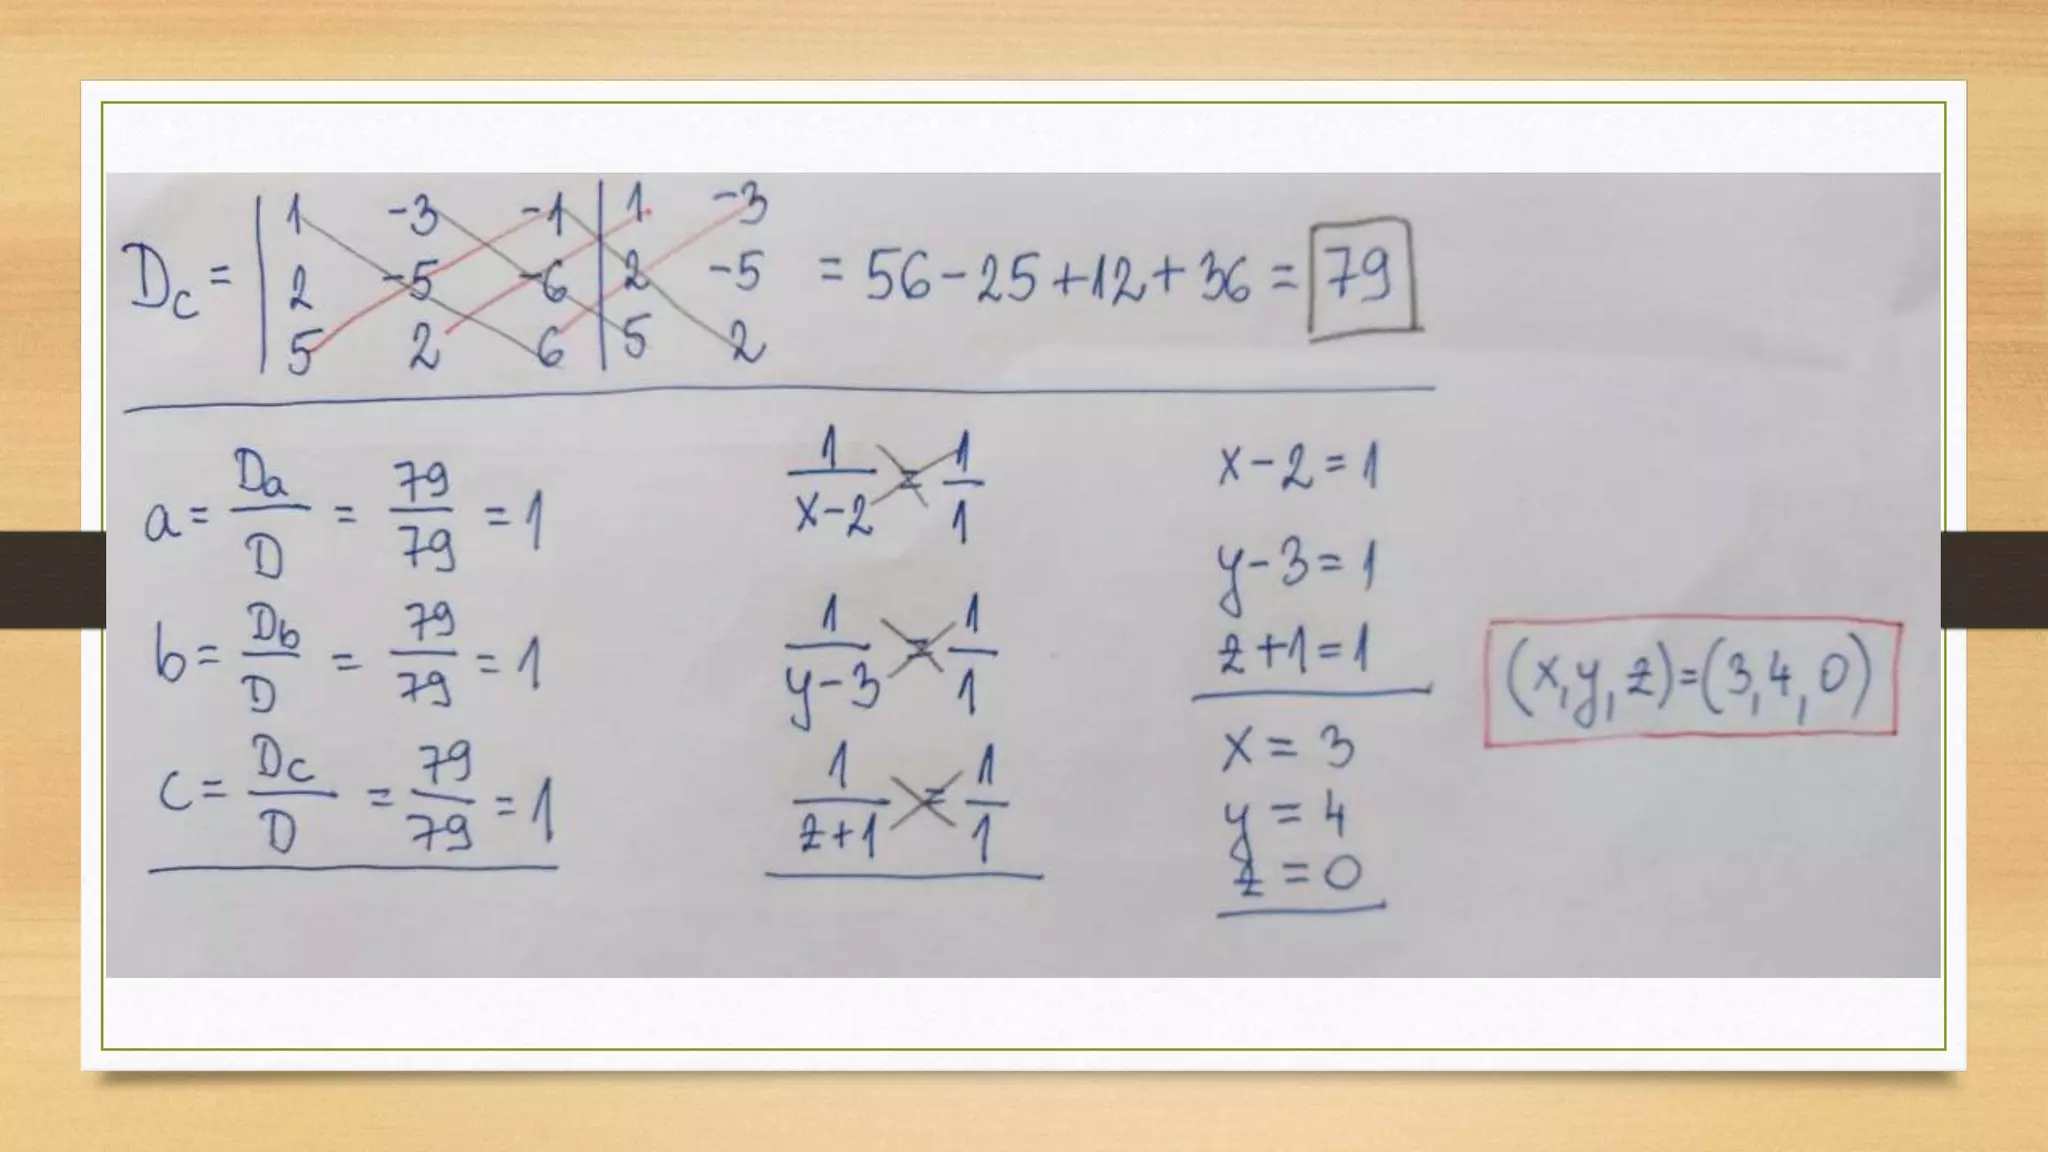 Dc = | 1 -3 -1 | 1 -3
2 -5 -6 | 2 -5 = 56 - 25 + 12 + 36 = 79
5 2 6 | 5 2
a = Da/D = 79/79 = 1
b = Db/D = 79/79 = 1
c = Dc/D = 79/79 = 1
1/(x-2) = 1/1
1/(y-3) = 1/1
1/(z+1) = 1/1
x - 2 = 1
y - 3 = 1
z + 1 = 1
x = 3
y = 4
z = 0
(x, y, z) = (3, 4, 0)